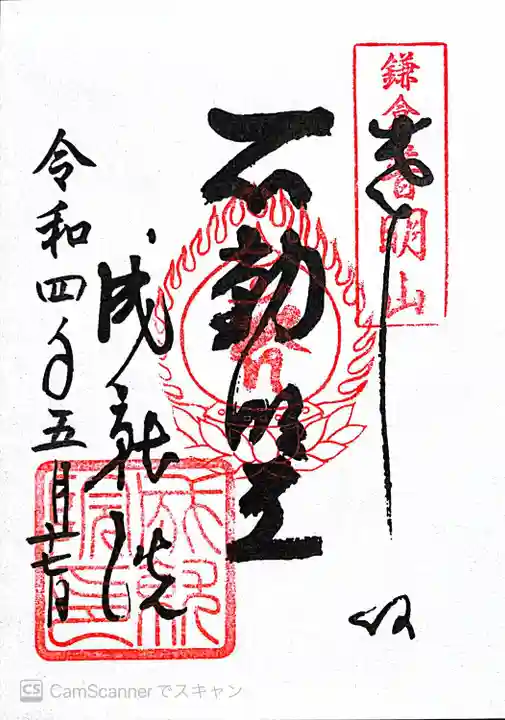 奉
拝
鎌倉普明山
不動明王
成就院
令和四年五月十七日
CS CamScannerでスキャン